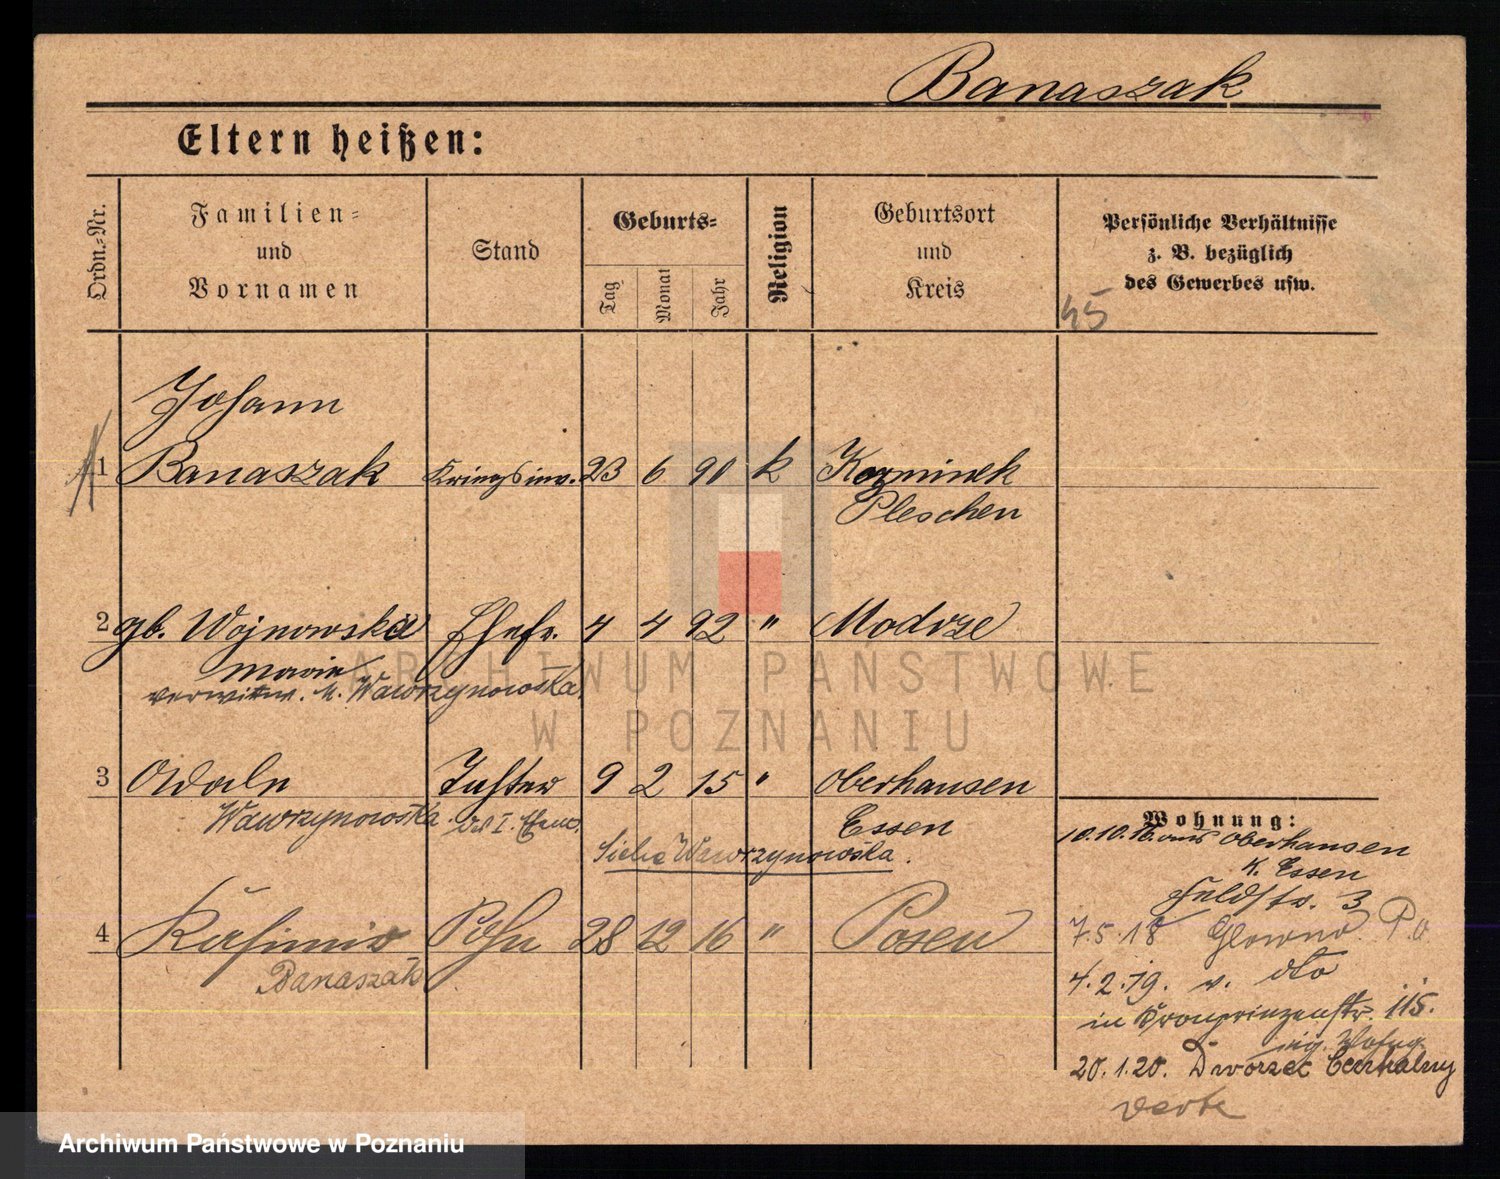 Banaszak
Eltern heißen:
Ordn.-Nr.
Familien-
und
Vornamen
Stand
Geburts-
Tag
Monat
Jahr
Religion
Geburtsort
und
Kreis
Persönliche Verhältnisse
z. B. bezüglich
des Gewerbes usw.
45
Johann
1 Banaszak Kriegsinv. 23 6 90 k Kozminek
Pleschen
2 gb. Wojnowska Ehefr. 4 4 92 " Modrze
Marie
verwitw. n. Wawrzynowska
3 Tochter 9 2 15 " Oberhausen
Wawrzynowska I. Essen
Siehe Wawrzynowska.
4 Kasimir Sohn 28 12 16 " Posen
Banaszak
Wohnung:
10.10.16. aus Oberhausen
K. Essen
Feldstr. 3
7.5.18 Glowno P.O
4.2.19. v. dto
in Kronprinzenstr. 115.
20.1.20. Dworzec Centralny
ARCHIWUM PAŃSTWOWE
W POZNANIU
Archiwum Państwowe w Poznaniu